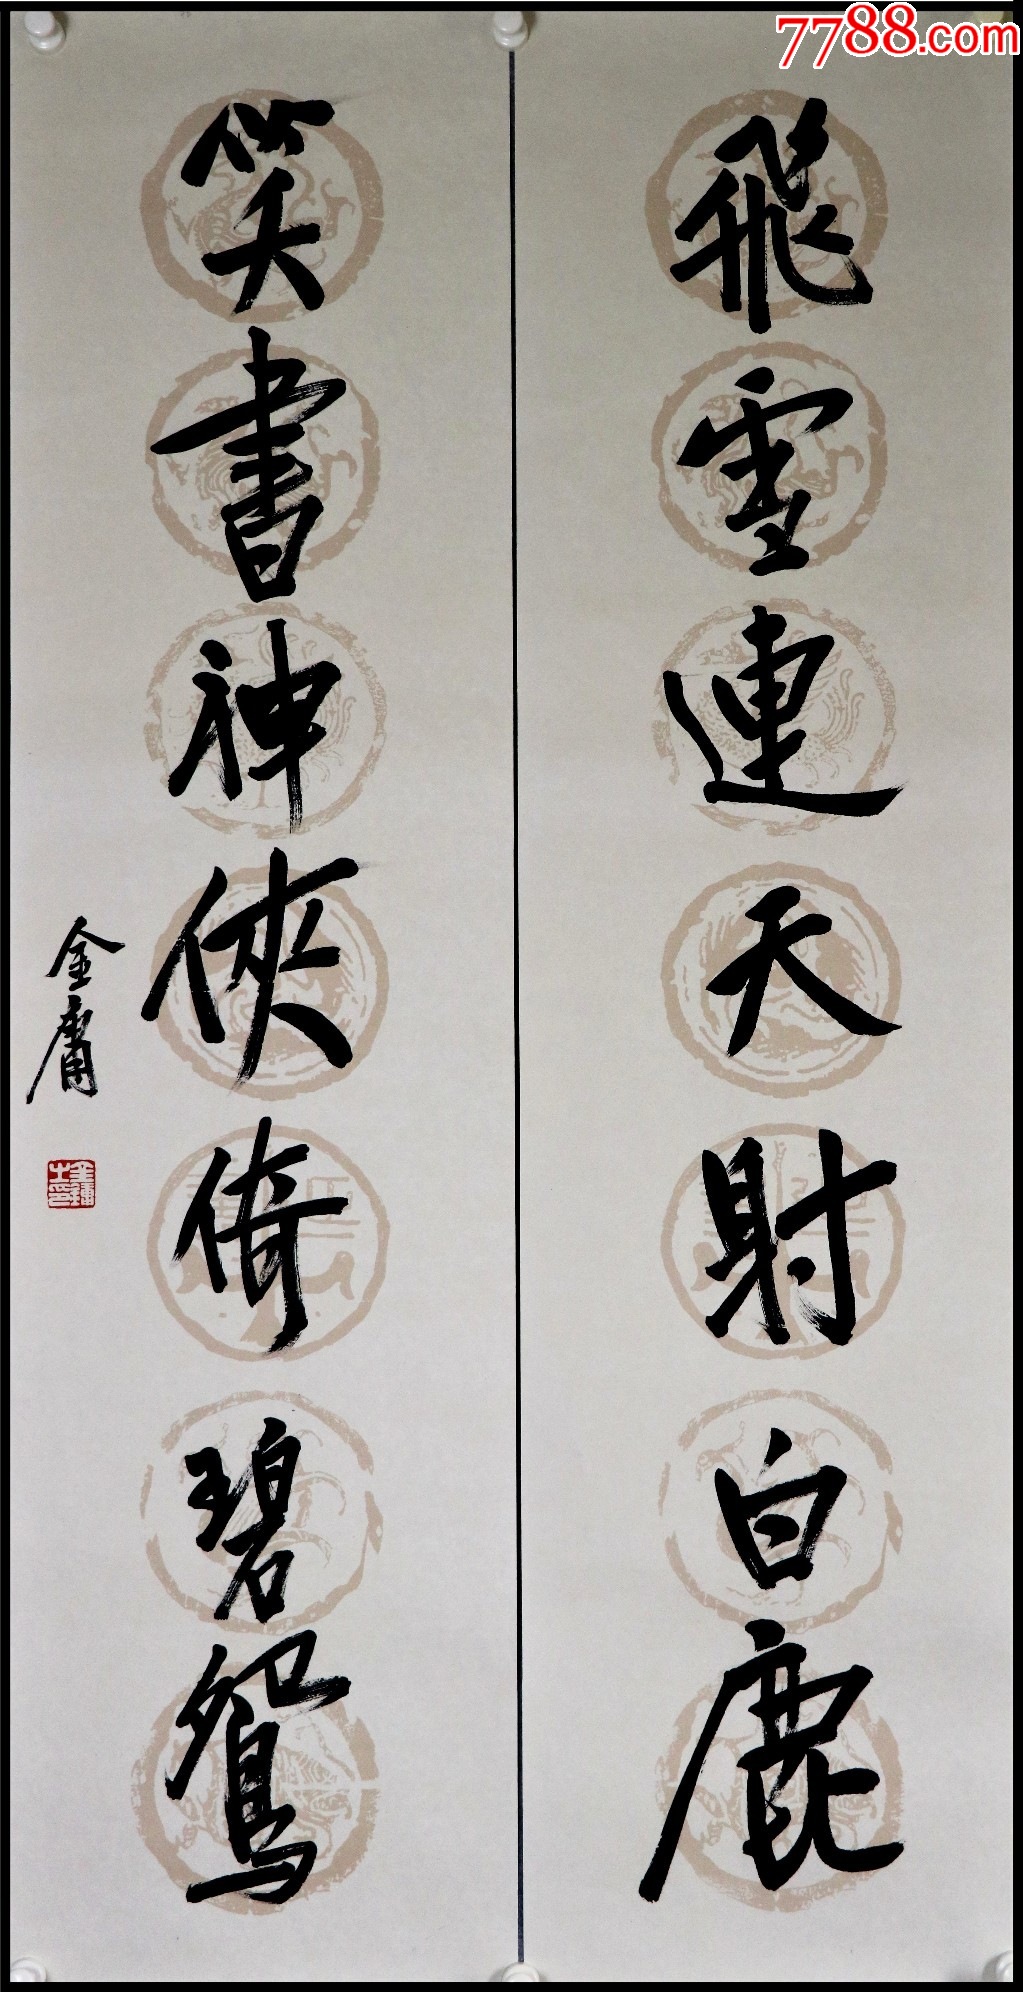 7788.com
飛雪連天射白鹿
笑書神俠倚碧鴛
金庸